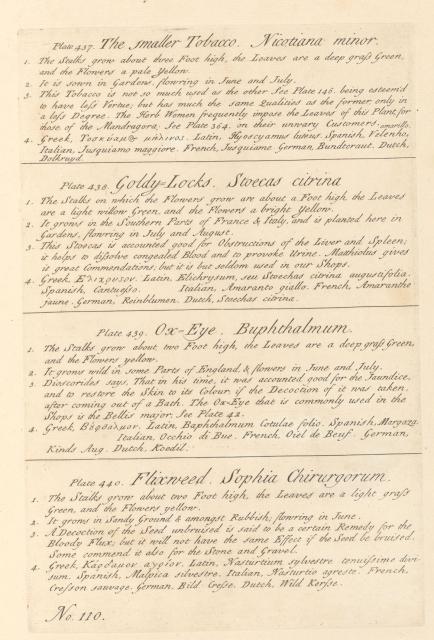 Plate 437. The smaller Tobacco. Nicotiana minor.
1. The Stalks grow about three Foot high, the Leaves are a deep grass Green,
and the Flowers a pale Yellow.
2. It is sown in Gardens, flowring in June and July.
3. This Tobacco is not so much used as the other See Plate 146. being esteem'd
to have less Vertue; but has much the same Qualities as the former, only in
a less Degree. The Herb Women frequently impose the Leaves of this Plant for
those of the Mandragora; See Plate 364. on their unwary Customers.
4. Greek, Latin, Hyoscyamus luteus. Spanish, Velenho,
Italian, Jusquiamo maggiore. French, Jusquiame. German, Bundtoraut. Dutch,
Dollruyd.
Plate 438. Goldy=Locks. Stoecas citrina
1. The Stalks on which the Flowers grow are about a Foot high, the Leaves
are a light willow Green, and the Flowers a bright Yellow.
2. It grows in the Southern Parts of France & Italy, and is planted here in
Gardens, flowring in July and August.
3. This Stoecas is accounted good for Obstructions of the Liver and Spleen;
it helps to dissolve congealed Blood and to provoke Urine. Matthiolus gives
it great Commendations, but it is but seldom used in our Shops.
4. Greek, Latin, Elichrysum, seu Stoechas citrina augustifolia.
Spanish, Cantuesso. Italian, Amaranto giallo. French, Amaranthe
jaune. German, Reinblumen. Dutch, Stoechas citrina.
Plate 439. Ox-Eye. Buphthalmum.
1. The Stalks grow about two Foot high, the Leaves are a deep grass Green,
and the Flowers yellow.
2. It grows wild in some Parts of England, & flowers in June and July.
3. Dioscorides says, That in his time, it was accounted good for the Jaundice,
and to restore the Skin to its Colour if the Decoction of it was taken
after coming out of a Bath. The Ox-Eye that is commonly used in the
Shops is the Bellis major. See Plate 42.
4. Greek, Latin, Baphthalmum Cotulae folio. Spanish, Margaza.
Italian, Occhio di Bue. French, Oiel de Beuf. German,
Kinds Aug. Dutch, Koedil.
Plate 440. Flixweed. Sophia Chirurgorum.
1. The Stalks grow about two Foot high, the Leaves are a light grass
Green, and the Flowers yellow.
2. It grows in Sandy Ground & amongst Rubbish, flowring in June.
3. A Decoction of the Seed unbruised is said to be a certain Remedy for the
Bloody Flux; but it will not have the same Effect if the Seed be bruised.
Some commend it also for the Stone and Gravel.
4. Greek, Κάρδαμον αγρίον. Latin, Nasturtium sylvestre tenuissime divi-
sum. Spanish, Malpica silvestre. Italian, Nasturtio agreste. French,
Cresson sauvage. German, Bild Cresse. Dutch, Wild Kersse.
No. 110.